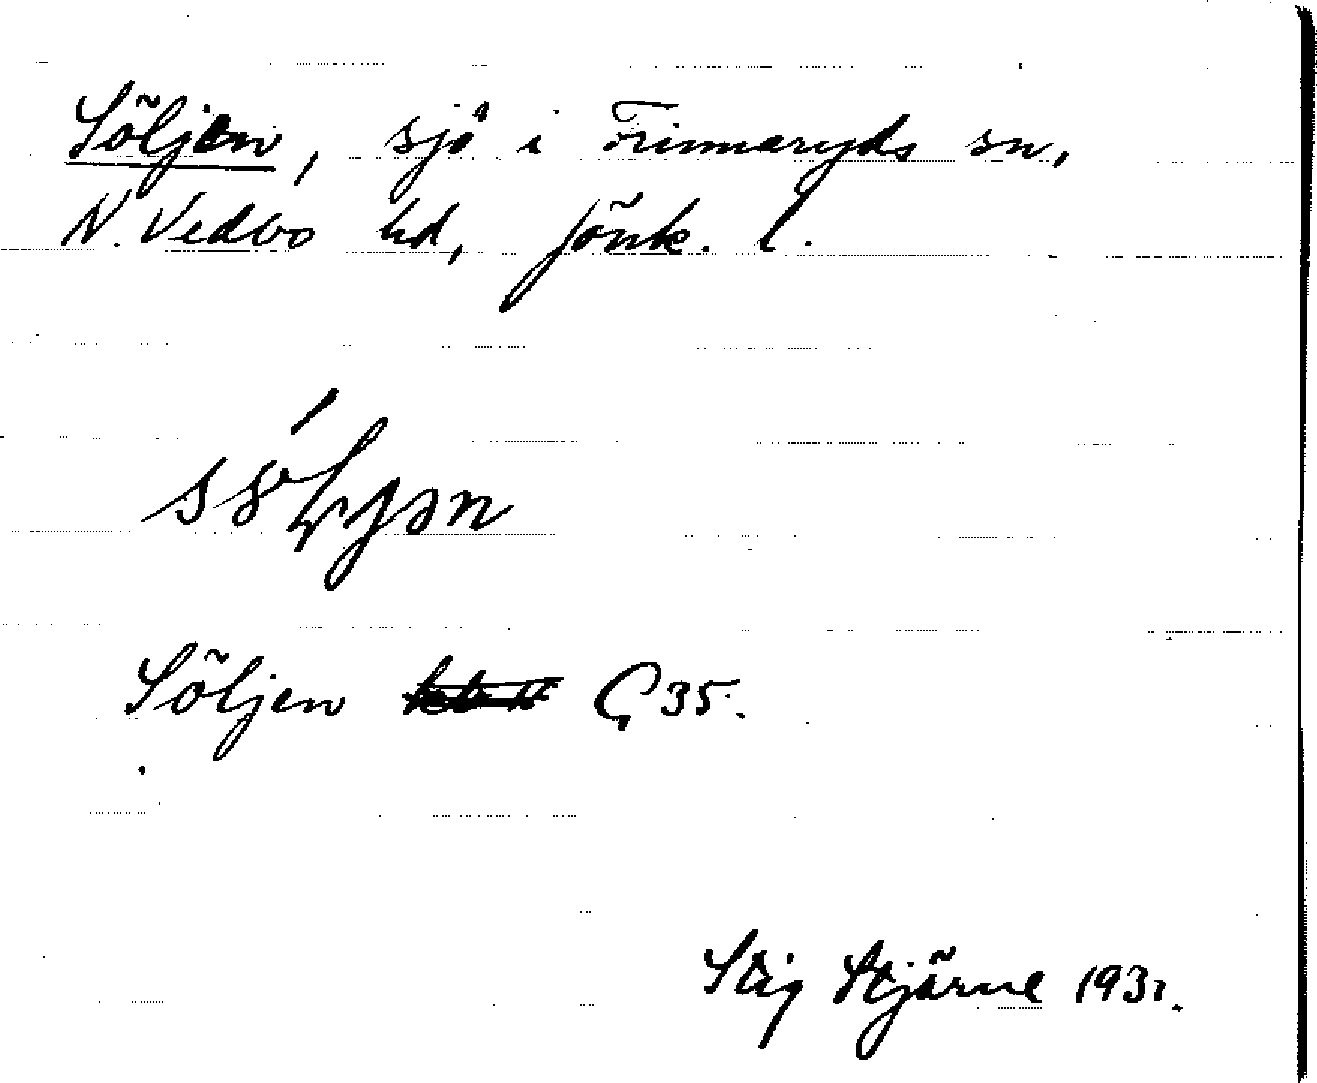 Söljen, sjö i Frinnaryds sn,
N. Vedbo hd, Jönk. l.
Söljen G 35.
Stig Stjärne 1931.